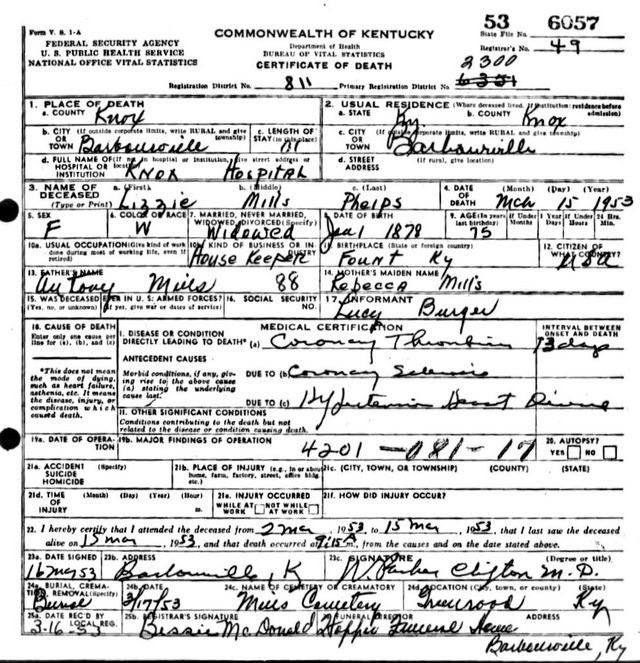 Form V. S. 1-A
FEDERAL SECURITY AGENCY
U. S. PUBLIC HEALTH SERVICE
NATIONAL OFFICE VITAL STATISTICS
COMMONWEALTH OF KENTUCKY
Department of Health
BUREAU OF VITAL STATISTICS
CERTIFICATE OF DEATH
53 6057
State File No.
Registrar's No. 49
2300
Registration District No. 811 Primary Registration District No. 6351
1. PLACE OF DEATH
a. COUNTY Knox
2. USUAL RESIDENCE (Where deceased lived. If institution: residence before admission)
a. STATE Ky b. COUNTY Knox
b. CITY (If outside corporate limits, write RURAL and give township) OR TOWN Barbourville
c. LENGTH OF STAY (in this place)
c. CITY (If outside corporate limits, write RURAL and give township) OR TOWN Barbourville
d. FULL NAME OF (If not in hospital or institution, give street address or location) HOSPITAL OR INSTITUTION Knox Hospital
d. STREET ADDRESS (If rural, give location)
3. NAME OF DECEASED (Type or Print) a. (First) Lizzie b. (Middle) Mills c. (Last) Phelps
4. DATE OF DEATH (Month) (Day) (Year) Mch 15 1953
5. SEX F
6. COLOR OR RACE W
7. MARRIED, NEVER MARRIED, WIDOWED, DIVORCED (Specify) Widowed
8. DATE OF BIRTH Jan 1 1878
9. AGE (In years last birthday) 75
If Under 1 Year Months Days
If Under 24 Hrs. Hours Min.
10a. USUAL OCCUPATION (Give kind of work done during most of working life, even if retired)
10b. KIND OF BUSINESS OR INDUSTRY House Keeper
11. BIRTHPLACE (State or foreign country) Fount Ky
12. CITIZEN OF WHAT COUNTRY? USA
13. FATHER'S NAME Antony Mills 88
14. MOTHER'S MAIDEN NAME Rebecca Mills
15. WAS DECEASED EVER IN U. S. ARMED FORCES? (Yes, no, or unknown) (If yes, give war or dates of service)
16. SOCIAL SECURITY NO.
17. INFORMANT Lucy Burger
18. CAUSE OF DEATH
Enter only one cause per line for (a), (b), and (c)
*This does not mean the mode of dying, such as heart failure, asthenia, etc. It means the disease, injury, or complication which caused death.
MEDICAL CERTIFICATION
INTERVAL BETWEEN ONSET AND DEATH
I. DISEASE OR CONDITION DIRECTLY LEADING TO DEATH* (a) Coronary Thrombosis 13 days
ANTECEDENT CAUSES
Morbid conditions, if any, giving rise to the above cause (a) stating the underlying cause last.
DUE TO (b) Coronary Sclerosis
DUE TO (c) Hypertension Heart Disease
II. OTHER SIGNIFICANT CONDITIONS
Conditions contributing to the death but not related to the disease or condition causing death.
19a. DATE OF OPERATION
19b. MAJOR FINDINGS OF OPERATION
4201-081-17
20. AUTOPSY? YES NO
21a. ACCIDENT SUICIDE HOMICIDE (Specify)
21b. PLACE OF INJURY (e.g., in or about home, farm, factory, street, office bldg. etc.)
21c. (CITY, TOWN, OR TOWNSHIP) (COUNTY) (STATE)
21d. TIME OF INJURY (Month) (Day) (Year) (Hour)
21e. INJURY OCCURRED WHILE AT WORK NOT WHILE AT WORK
21f. HOW DID INJURY OCCUR?
22. I hereby certify that I attended the deceased from 2 Mar, 1953, to 15 Mar, 1953, that I last saw the deceased
alive on 15 Mar, 1953, and that death occurred 9:15 A m., from the causes and on the date stated above.
23a. DATE SIGNED 16 Mar 53
23b. ADDRESS Barbourville, K
23c. SIGNATURE (Degree or title) Clifton M.D.
24a. BURIAL, CREMATION, REMOVAL (Specify) Burial
24b. DATE 3/17/53
24c. NAME OF CEMETERY OR CREMATORY Mills Cemetery
24d. LOCATION (City, town, or county) (State) Ky
25a. DATE REC'D BY LOCAL REG. 3-16-53
25b. REGISTRAR'S SIGNATURE Bessie McDonald
FUNERAL DIRECTOR ADDRESS Hopper Funeral Home
Barbourville, Ky